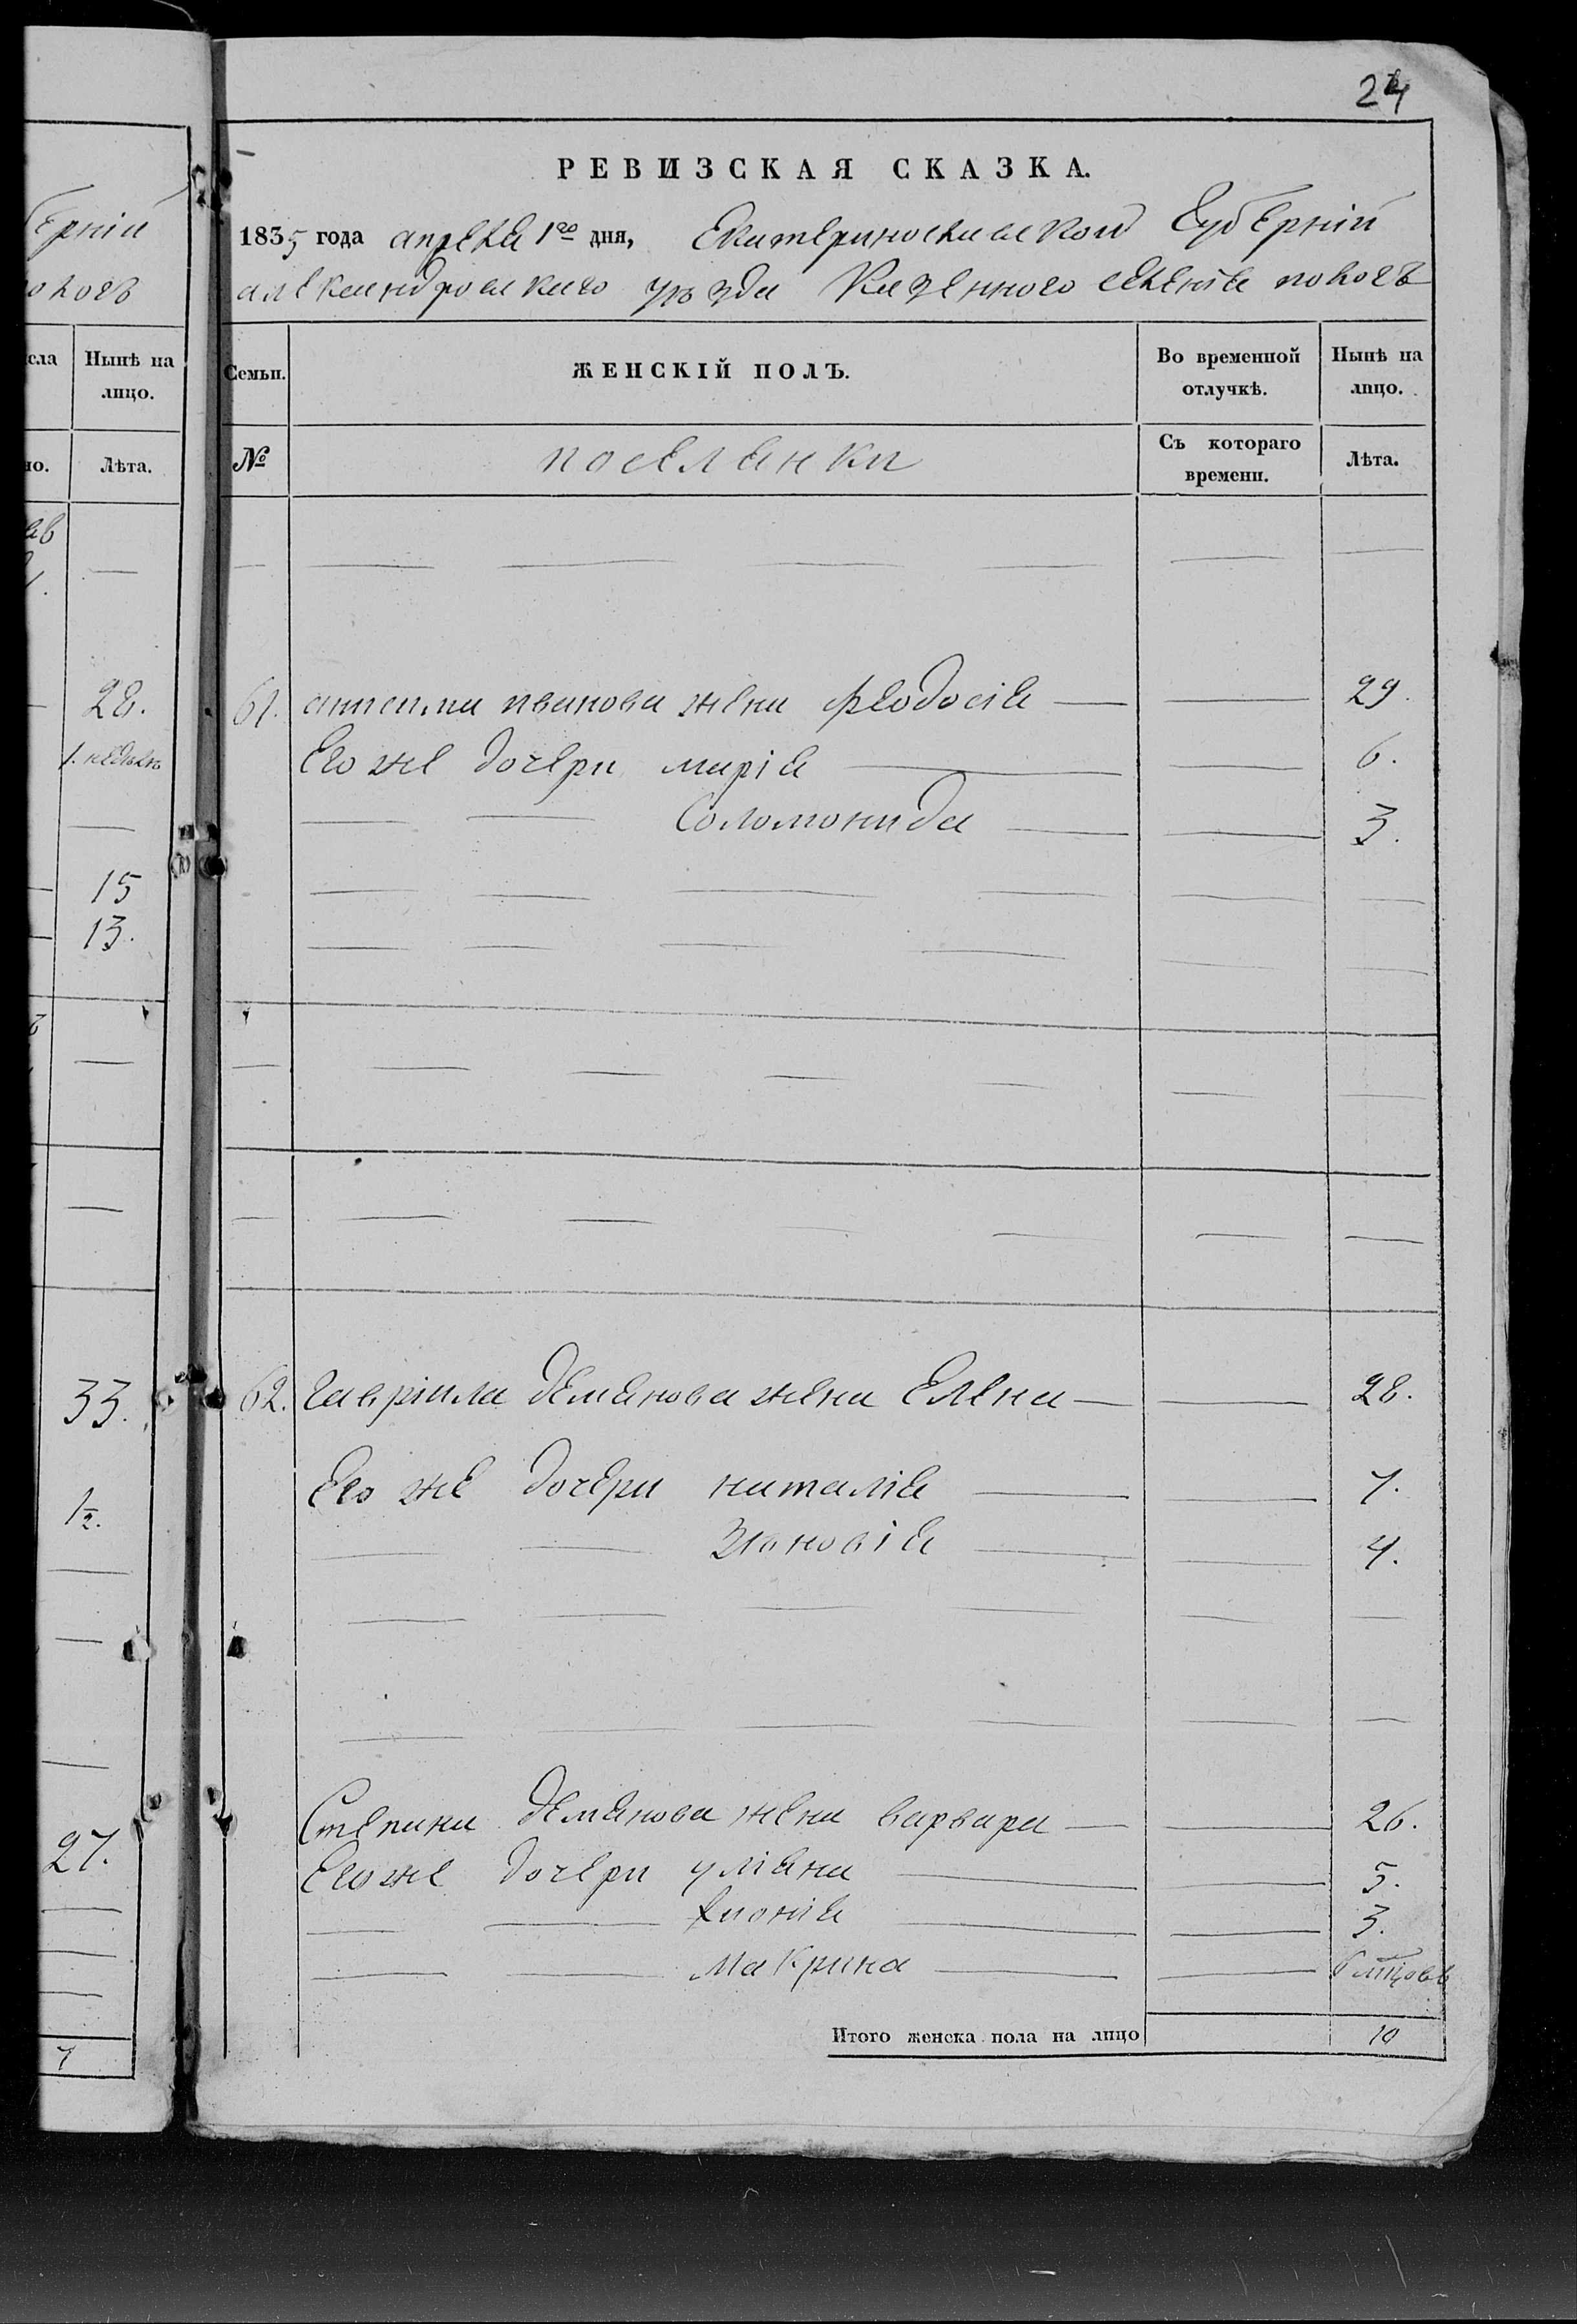 24
РЕВИЗСКАЯ СКАЗКА.
1835 года апреля 1го дня, Екатеринославской Губернiи
александровского уѣзда Казенного селенiя пологъ
ернiи
ологъ
сла
Нынѣ на лицо.
но.
Лѣта.
28.
1. неделя
15
13.
33.
1/2.
27.
7
Семьи.
ЖЕНСКIЙ ПОЛЪ.
Во временной отлучкѣ.
Нынѣ на лицо.
№
поселянки
Съ котораго времени.
Лѣта.
61. иванова жена феодосiя 29.
Его же дочери марiя 6.
Соломонида 3.
62. Гаврiила демянова жена Елена 28.
Его же дочери наталiя 7.
Зиновiя 4.
Степана демянова жена варвара 26.
Его же дочери улiяна 5.
хионiя 3.
Макрина
Итого женска пола на лицо 10